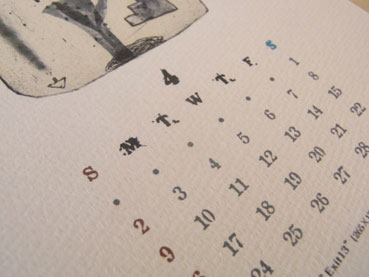 4
S M T. W T. F. S
• • • • • • 1
2 3 4 5 6 7 8
9 10 11 12 13 14 15
17 18 19 20 21 22
24 25 26 27 28
Exit13" [265